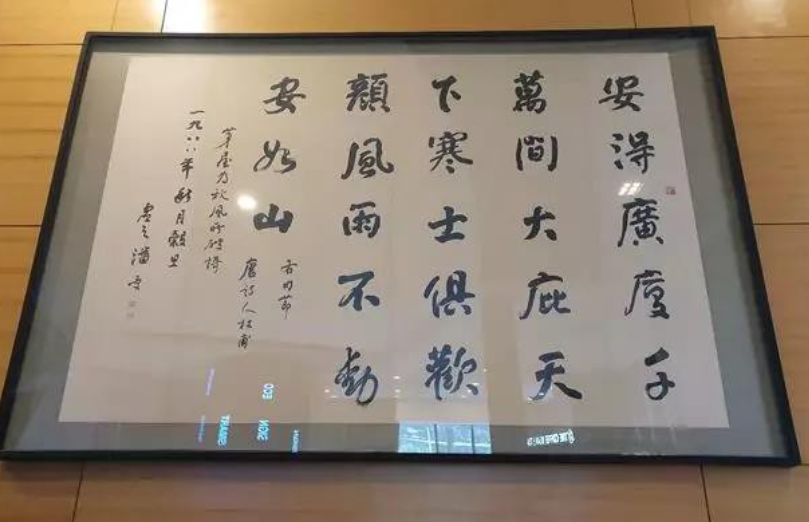 安得廣廈千
萬間大庇天
下寒士俱歡
顏風雨不動
安如山
右句節
唐詩人杜甫
茅屋為秋風所破詩
一九八八年秋月穀旦
潘